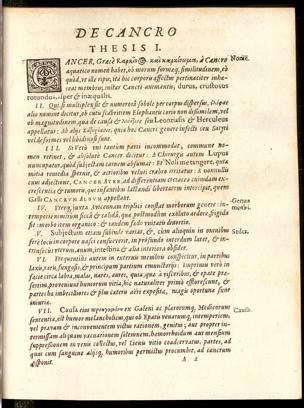 DE CANCRO
THESIS I.
CANCER, Græcè Καρκίν καὶ καρκίνωμα, à Cancro
aquatico nomen habet, ob morum formæq, similitudinem, eò
quòd, ut ille ripis, ita hic corpori affectui pertinaciter inhæ
reat membris, instar Cancri animantis, durus, crustosus
rotundus, asper & inæqualis.
Nomē.
II. Qui si multiplex sit & numerosâ sobole per corpus dispersus,
alio nomine dicitur, ob cutis scabritiem Elephanti coria non dissimilem, vel
ob magnitudinem, quæ de causa & Leontiasis & Herculeus
appellatur: quia hoc Cancri genere infecti ceu Satyri
vel deformes vel libidinosi.
III. Si verò uni tantùm parti incommodat, commune no-
men retinet, & absolutè Cancer dicitur: à Chirurgis autem Lupus
nuncupatur, quòd subjectam carnem absumat: & Noli me tangere, quia
mitia remedia spernit, & acrioribus veluti crabro irritatur. Et nonnullis
cum adjectione, Cancer Ater, ad differentiam crustacea cujusdam ex-
crescentia & tumoris, qui infantibus lactandi libertatem intercipit, quem
Galli Cancrum Album appellant.
IV. Verùm, juxta Avicennam triplici constat morborum genere: in-
temperie nimirum sicca & calida, quæ postmodum exustio ardore, frigida
fit: morbo item organico: & tandem soluta unitate diversa.
Genus
morbi.
V. Subjectum etiam subinde variat, &, cum aliquin in omnibus
ferè locis in corpore nasci consueverit, in profundo interdum latet, & in-
trinsecus uterum, anum, intestina & alia interiora obsidet.
Sedes.
VI. Frequentiùs autem in externis membris conspicitur, in partibus
laxis, raris, fungosis, & principum partium emunctoriis: Imprimis verò in
facie circa labra, malas, nares, aures, quia, quæ à visceribus, & epate præ-
sertim, proveniunt humorum vitia, hic naturaliter primò efflorescunt, &
partes hæ imbecilliores & plus cæteris aëri expositæ, magis oportunæ sunt
injuriis.
VII. Causa ejus ex Galeni ac plærorumq, Medicorum
sententia, est humor melancholicus, qui ob Epatis venarumq, intemperiem,
vel pravam & inconvenientem victus rationem, gignitur, aut propter in-
termissam aliquam vacuationem solennem, hæmorrhoidum aut mensium
suppressionem in venis collectus, vel Lienis vitio coacervatus, partes, ad
quas cum sanguine aliisq, humoribus permistus procumbit, ad cancrum
disponit.
Causa.
A 2